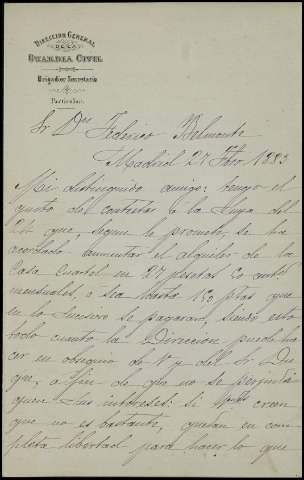 DIRECCION GENERAL
DE LA
GUARDIA CIVIL
Brigadier Secretario
Particular.
Sr Dn Federico Belmonte
Madrid 27 Fbro. 1883
Mi distinguido amigo: tengo el
gusto de contestar á la suya del
que, segun le prometí, se ha
acordado aumentar el alquiler de la
Casa Cuartel en 27 pesetas 50 cents
mensuales, ó sea hasta 150 ptas que
en lo sucesivo se pagaran, siendo esto
todo cuanto la Direccion puede ha
cer en obsequio de V. y del Sr Du
que, a fin de que no se perjudi
quen sus intereses: si creen
que no es bastante, quedan en com
pleta libertad para hacer lo que